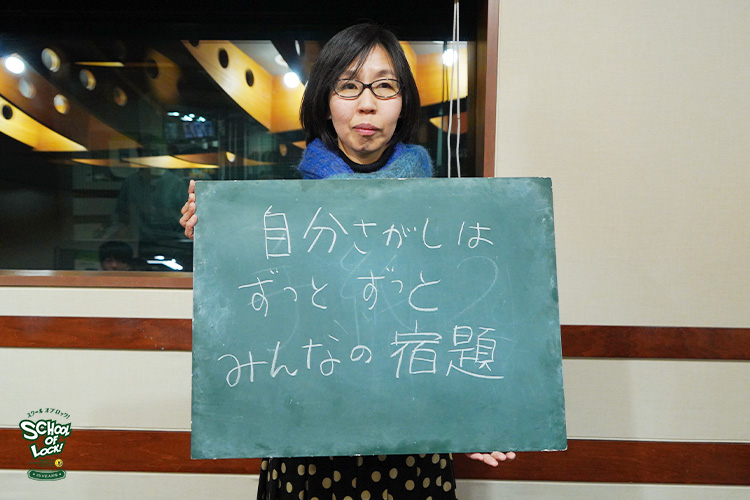 自分さがしは
ずっと ずっと
みんなの宿題
スクール オブ ロック!
SCHOOL
OF
LOCK!